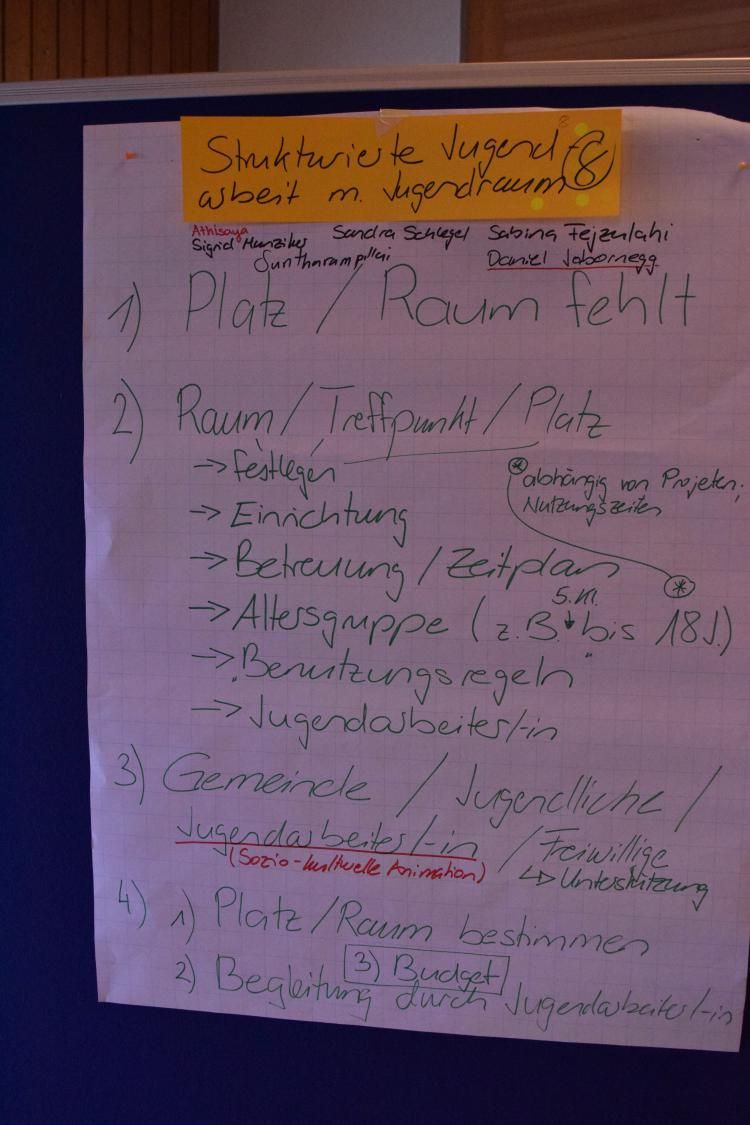 Strukturierte Jugend- 8
arbeit m. Jugendraum
8
Athisaya
Sigrid Hunziker Sandra Schlegel Sabina Fejzulahi
Suntharampillai Daniel Jabornegg
1) Platz / Raum fehlt
2) Raum / Treffpunkt / Platz
→ festlegen
* abhängig von Projeten,
Nutzungszeiten
→ Einrichtung
→ Betreuung / Zeitplan *
5.Kl.
→ Altersgruppe (z.B. ↓ bis 18J.)
→ "Benutzungsregeln"
→ Jugendarbeiter/-in
3) Gemeinde / Jugendliche /
Jugendarbeiter/-in / Freiwillige
(Sozio-kulturelle Animation) ↳ Unterstützung
4) 1) Platz/Raum bestimmen
3) Budget
2) Begleitung durch Jugendarbeiter/-in